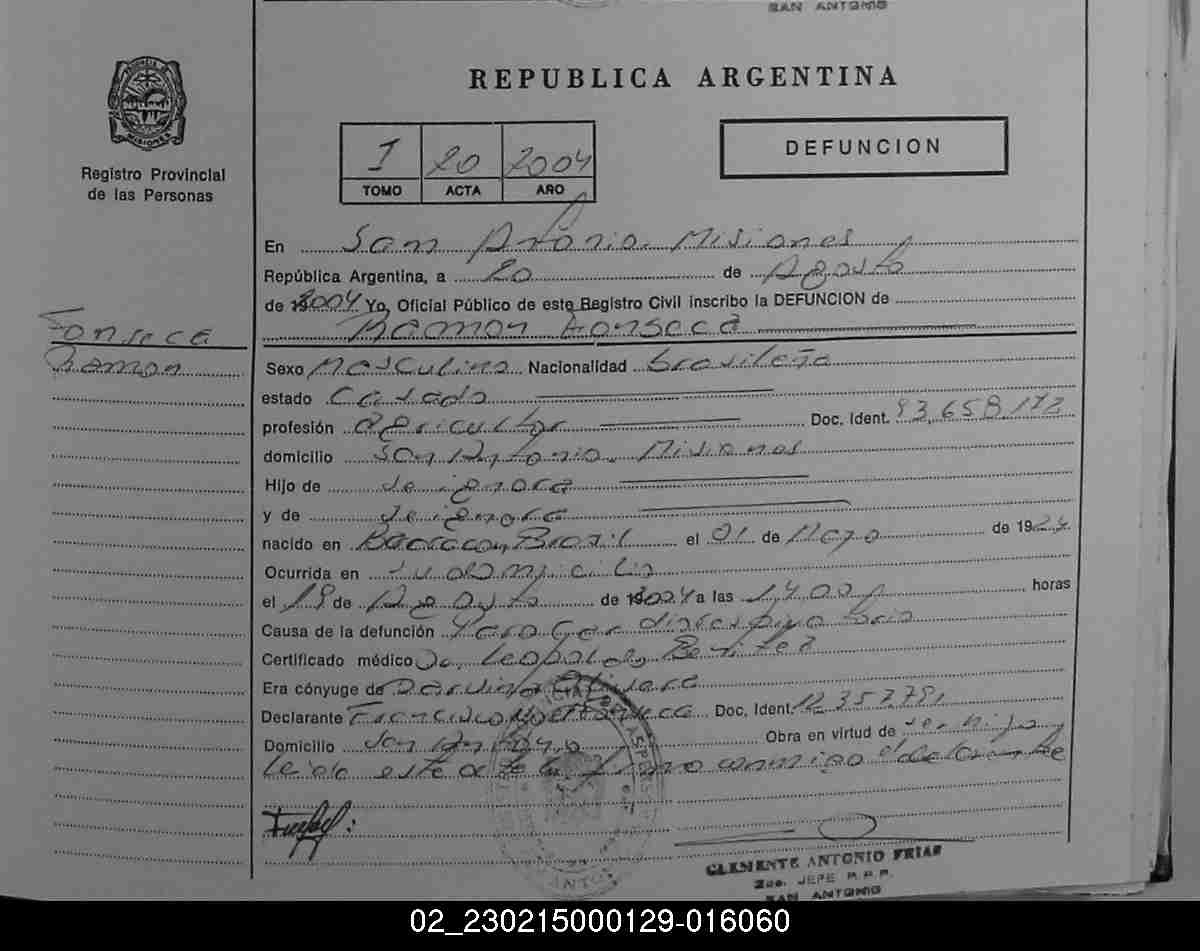 SAN ANTONIO
REPUBLICA ARGENTINA
PROVINCIA DE
MISIONES
Registro Provincial
de las Personas
I 20 2004
TOMO ACTA AÑO
DEFUNCION
En San Antonio. Misiones
República Argentina, a 20 de Agosto
de 2004 Yo, Oficial Público de este Registro Civil inscribo la DEFUNCION de
Ramon Fonseca
Fonseca
Ramon
Sexo Masculino Nacionalidad brasileña
estado Casado
profesión agricultor Doc. Ident. 93.658.172
domicilio San Antonio. Misiones
Hijo de se ignora
y de se ignora
nacido en Barracon Brasil el 01 de Mayo de 1924
Ocurrida en su domicilio
el 19 de Agosto de 2004 a las 14,00 horas
Causa de la defunción Paro
Certificado médico Dr. Leopoldo Benitez
Era cónyuge de
Declarante Francisco Fonseca Doc. Ident. 12.357.791
Domicilio San Antonio Obra en virtud de ser hijo
Leida este acta la firma conmigo el declarante
CLEMENTE ANTONIO FRIAS
2do. JEFE R.P.P.
SAN ANTONIO
02_230215000129-016060